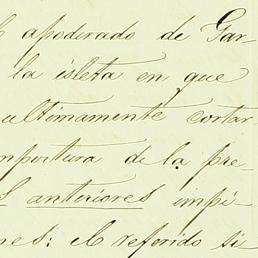 apoderado de Gar-
la isleta en que
ultimamente cortar
de la pre-
anteriores impi-
nes: el referido si-